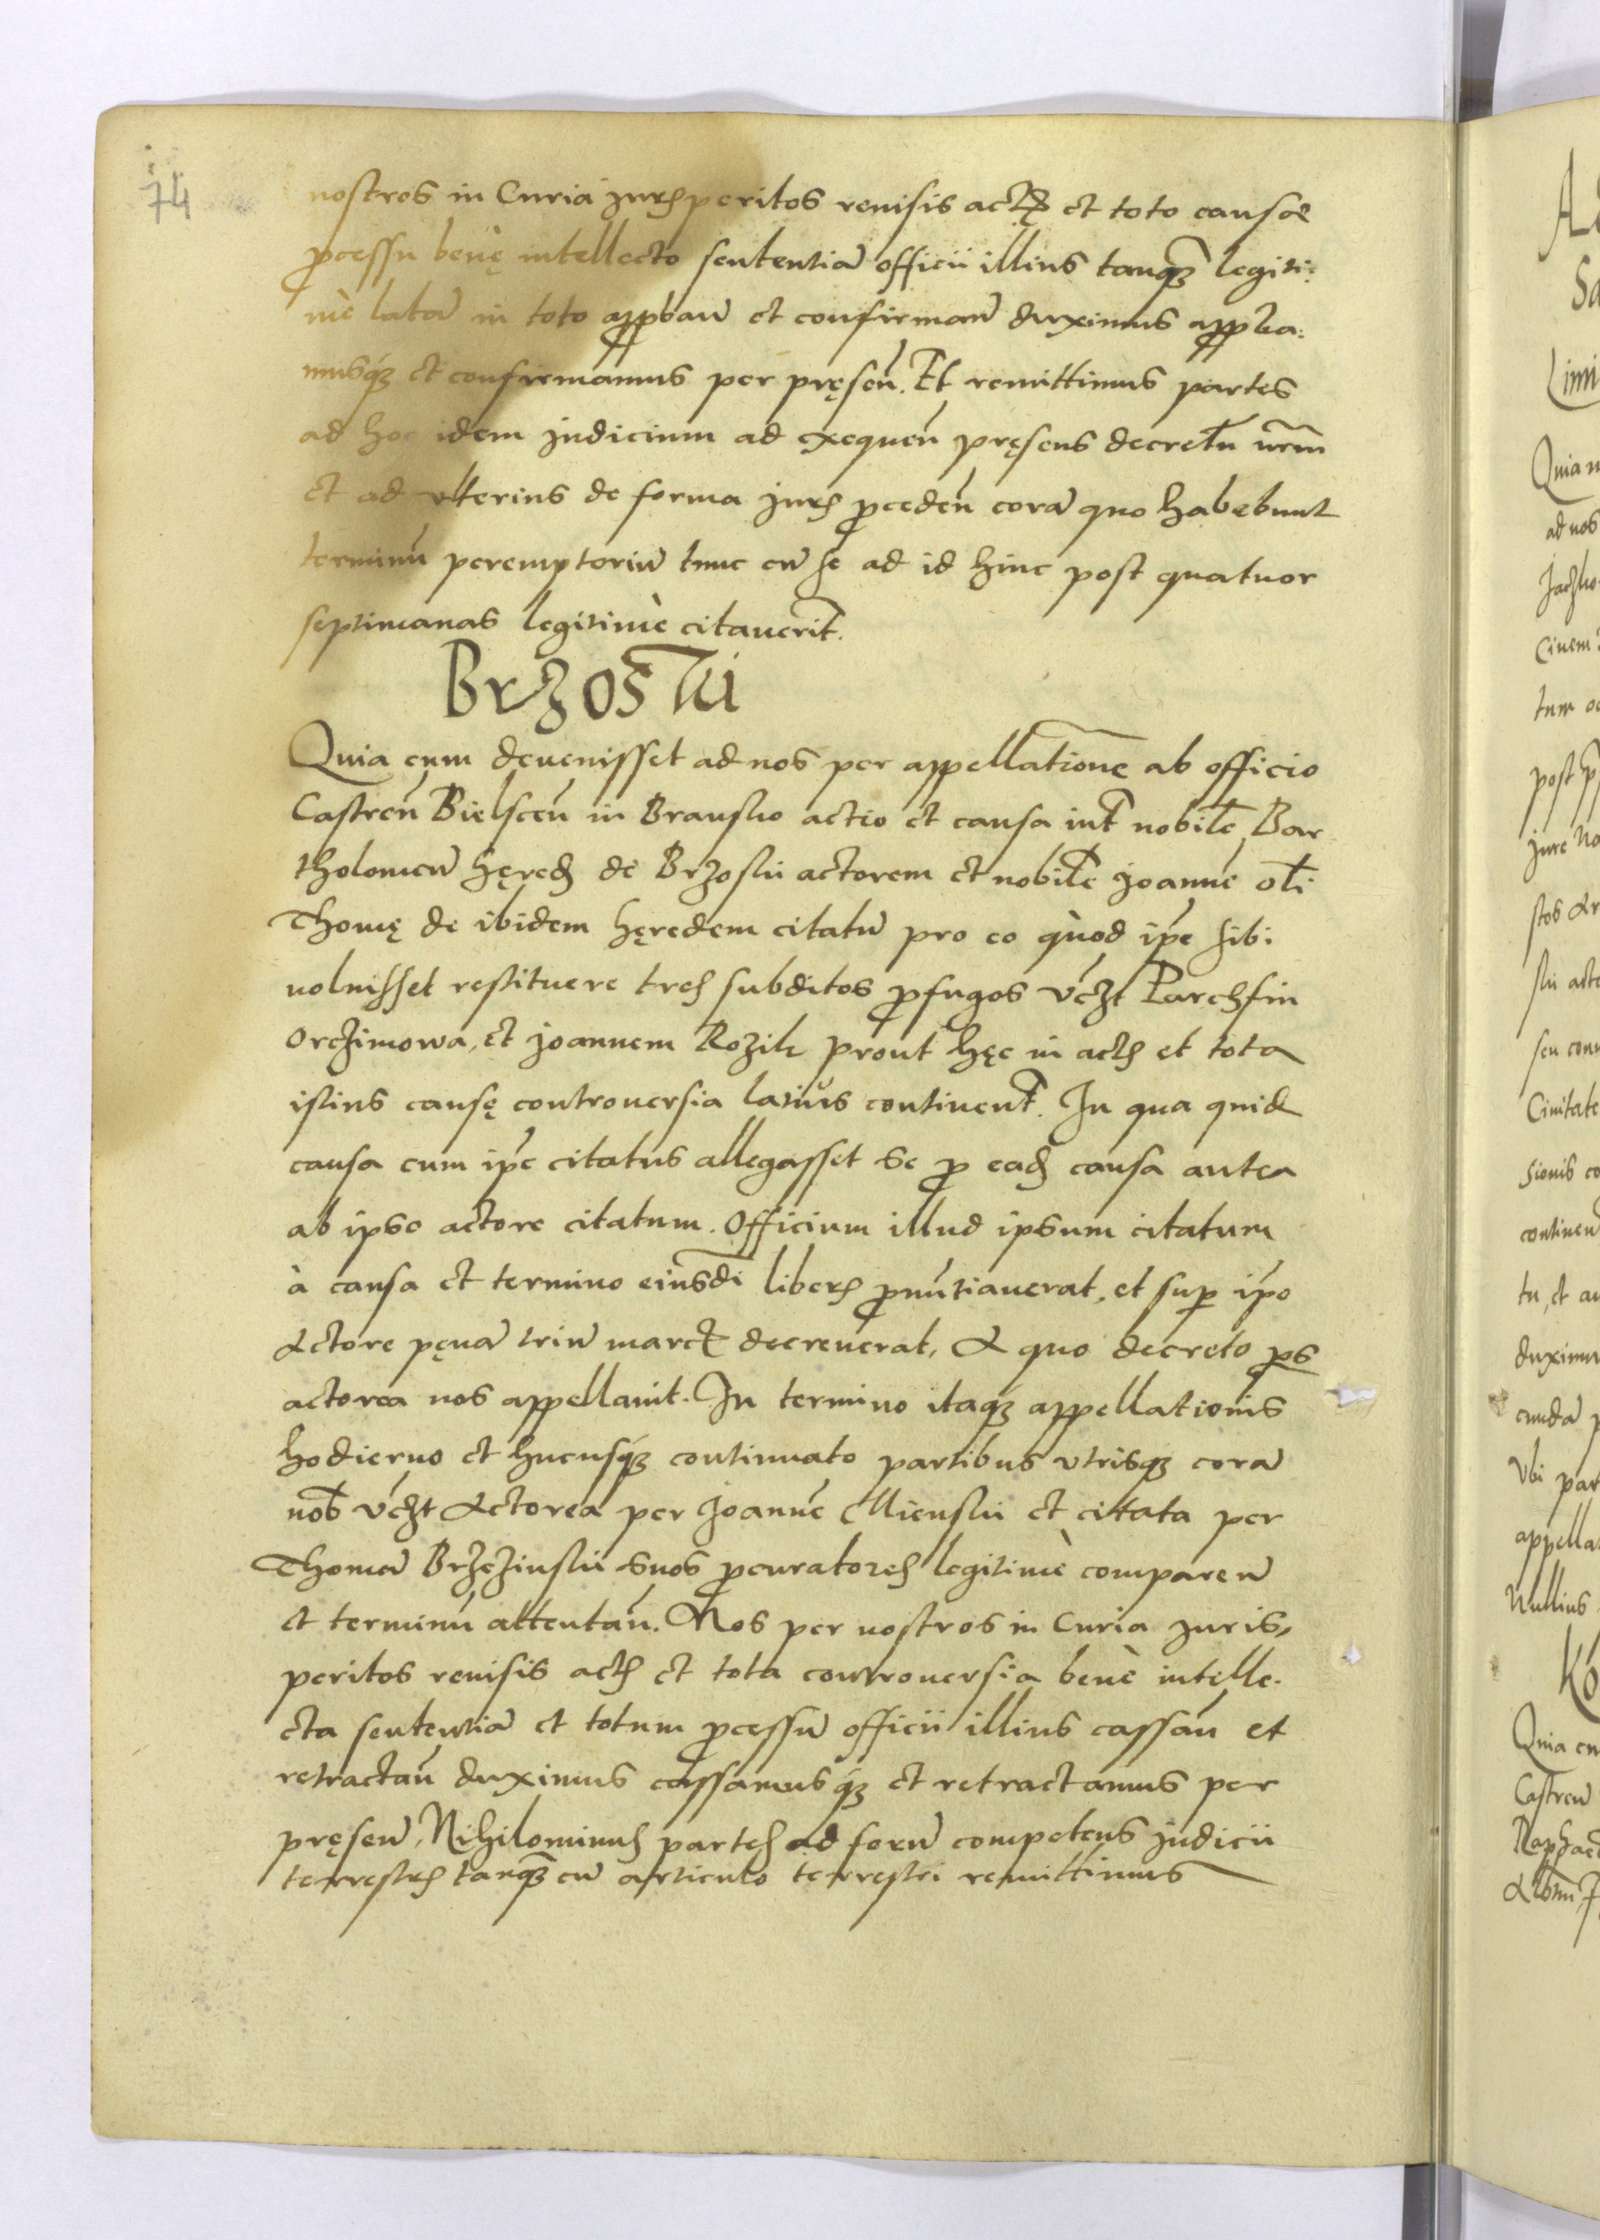 74
nostros in Curia jurisperitos reuisis actis et toto causæ
ꝓcessu benę intellecto sententiā officii illius tanqꝫ legiti:
mè latā in toto apꝓban̄ et confirman̄ duximus apꝓba:
musqꝫ et confirmamus per pręsen̄. Et remittimus partes
ad hoc idem judicium ad exequen̄ pręsens decretū nr̄m
et ad vlterius de forma juris ꝓceden̄ corā quo habebunt
terminū peremptoriū tunc cū se ad id hinc post quatuor
septimanas legitimè citauerit.
Brzosƙi
Quia cum deuenisset ad nos per appellationē ab officio
Castren̄ Bielscen̄ in Bransko actio et causa int̄ nobilē Bar
tholomeū hęred̄ de Brzoski actorem et nobilē Joannē ol̄i
Thomę de ibidem hęredem citatū pro eo quòd ip̄e sibi
noluisset restituere tres subditos ꝓfugos vc̄zt Parchfin
Orczimowa, et Joannem Rozik prout hęc in actis et tota
istius causę controuersia latius continent̄. In qua quid
causa cum ip̄e citatus allegasset se ꝓ ead̄ causa antea
ab ipso actore citatum. Officium illud ipsum citatum
à causa et termino eiusdī liberū ꝓnūtiauerat, et suꝑ ip̄o
Actore pęnā triū marcꝭ decreuerat, A quo decreto ꝑs
actorea nos appellauit. In termino itaqꝫ appellationis
hodierno et hucusqꝫ continuato partibus vtrisqꝫ corā
nob̄ vc̄zt Actorea per Joannē Mienski et citata per
Thomā Brzezinski suos ꝓcuratores legitimè comparen̄
et terminū attentan̄. Nos per nostros in Curia juris,
peritos reuisis actis et tota controuersia benè intelle.
cta sententiā et totum ꝓcessū officii illius cassan̄ et
retractan̄ duximus cassamusqꝫ et retractamus per
pręsen̄, Nihilominus partes ad forū competens judicii
terrestris tanqꝫ cū articulo terrestri remittimus